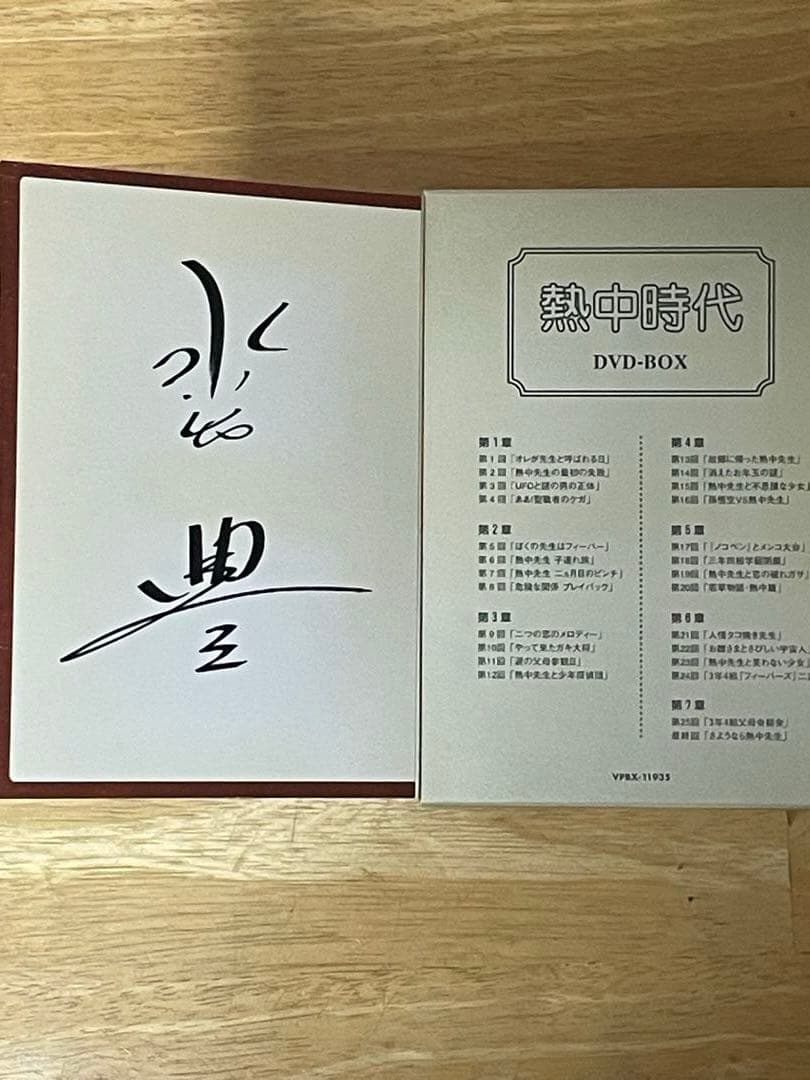 水谷
豊
熱中時代
DVD-BOX
第1章
第1回「オレが先生と呼ばれる日」
第2回「熱中先生の最初の失敗」
第3回「UFOと謎の男の正体」
第4回「ああ!聖職者のケガ」
第2章
第5回「ぼくの先生はフィーバー」
第6回「熱中先生 子連れ旅」
第7回「熱中先生 二ヵ月目のピンチ」
第8回「危険な関係 プレイバック」
第3章
第9回「二つの恋のメロディー」
第10回「やって来たガキ大将」
第11回「涙の父母参観日」
第12回「熱中先生と少年探偵団」
第4章
第13回「故郷に帰った熱中先生」
第14回「消えたお年玉の謎」
第15回「熱中先生と不思議な少女」
第16回「孫悟空VS熱中先生」
第5章
第17回「『ノコペン』とメンコ大会」
第18回「三年四組学級閉鎖」
第19回「熱中先生と恋の破れガサ」
第20回「若草物語・熱中篇」
第6章
第21回「人情タコ焼き先生」
第22回「お雛さまとさびしい宇宙人」
第23回「熱中先生と笑わない少女」
第24回「3年4組『フィーバーズ』二
第7章
第25回「3年4組父母会総会」
最終回「さようなら熱中先生」
VPBX-11935